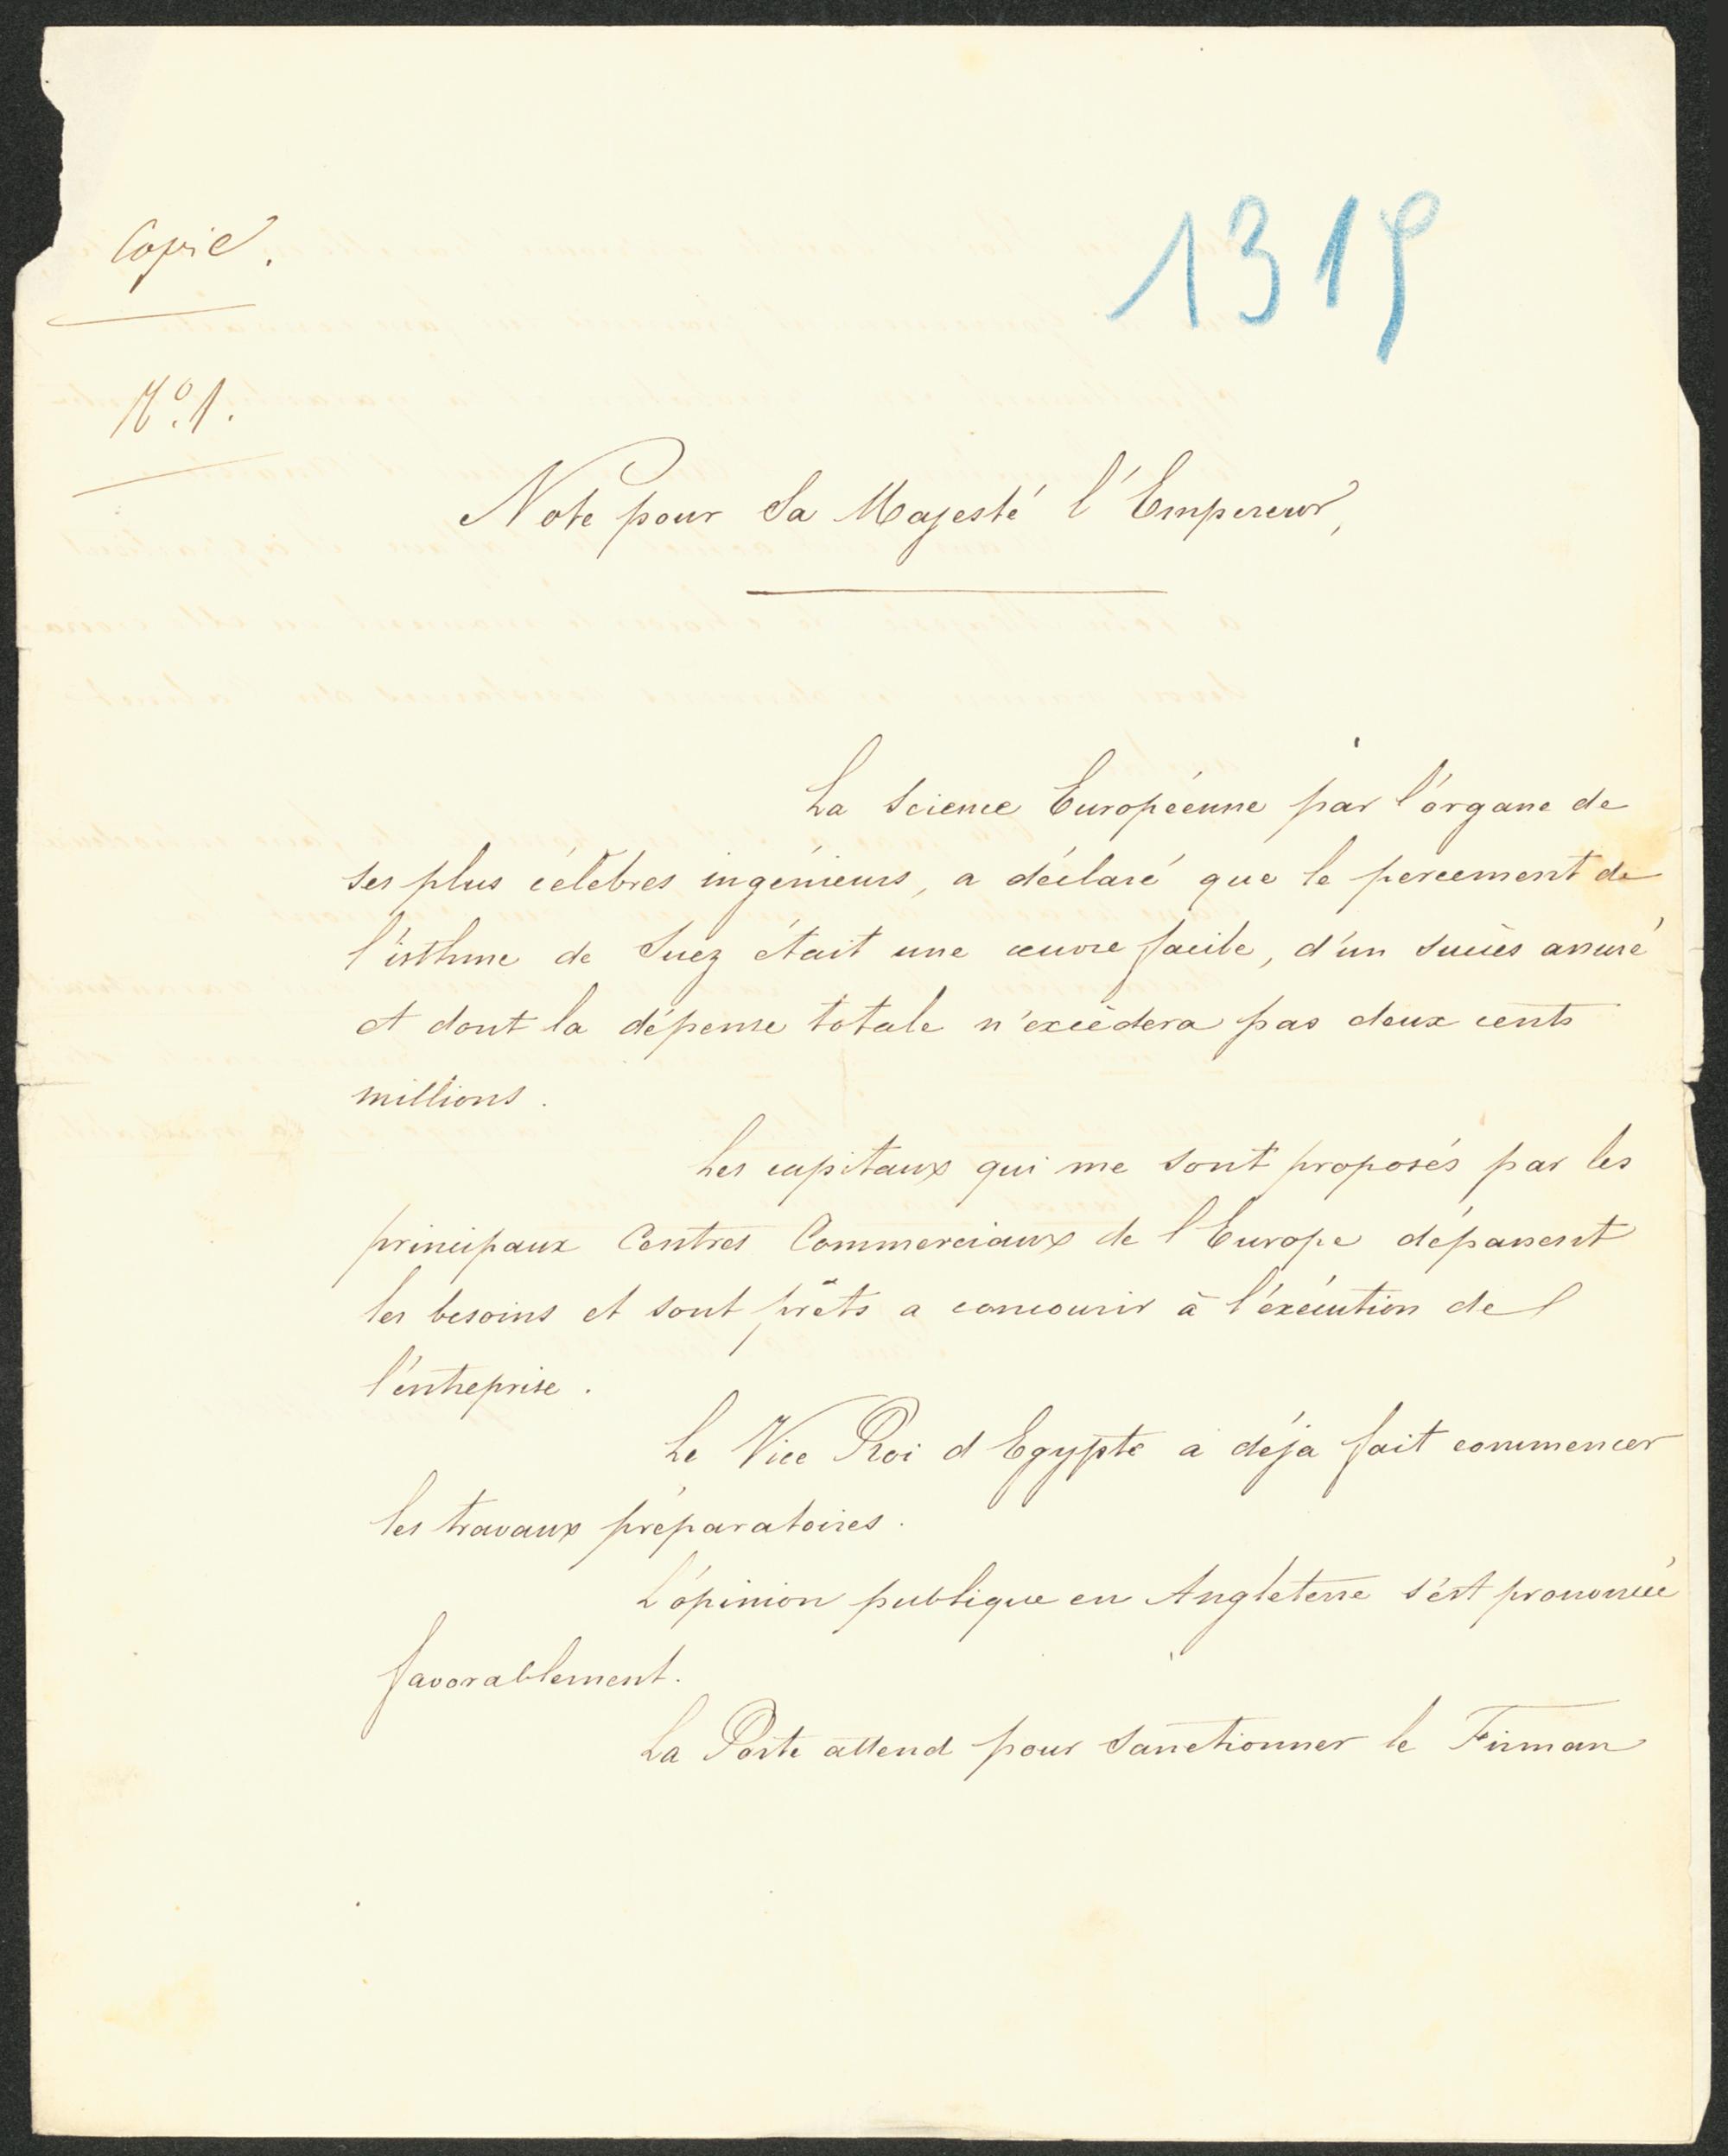 Copie.
1319
N.º 1.
Note pour Sa Majesté l'Empereur,
La Science Européenne par l'organe de
ses plus célèbres ingénieurs, a déclaré que le percement de
l'isthme de Suez était une œuvre facile, d'un succès assuré
et dont la dépense totale n'excèdera pas deux cents
millions.
Les capitaux qui me sont proposés par les
principaux Centres Commerciaux de l'Europe dépassent
les besoins et sont prêts a concourir à l'exécution de
l'entreprise.
Le Vice Roi d'Egypte a déja fait commencer
les travaux préparatoires.
L'opinion publique en Angleterre s'est prononcée
favorablement.
La Porte attend pour sanctionner le Firman